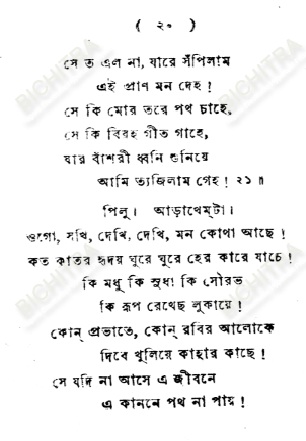 ( ২০ )
সে ত এল না, যারে সঁপিলাম
এই প্রাণ মন দেহ !
সে কি মোর তরে পথ চাহে,
সে কি বিরহ গীত গাহে,
যার বাঁশরী ধ্বনি শুনিয়ে
আমি ত্যজিলাম গেহ ! ২১ ॥
পিলু। আড়াখেম্‌টা।
ওগো, সখি, দেখি, দেখি, মন কোথা আছে !
কত কাতর হৃদয় ঘুরে ঘুরে হের কারে যাচে !
কি মধু কি সুধা কি সৌরভ
কি রূপ রেখেছ লুকায়ে !
কোন্ প্রভাতে, কোন্ রবির আলোকে
দিবে খুলিয়ে কাহার কাছে !
সে যদি না আসে এ জীবনে
এ কাননে পথ না পায় !
BICHITRA
BICHITRA
BICHITRA
BICHITRA